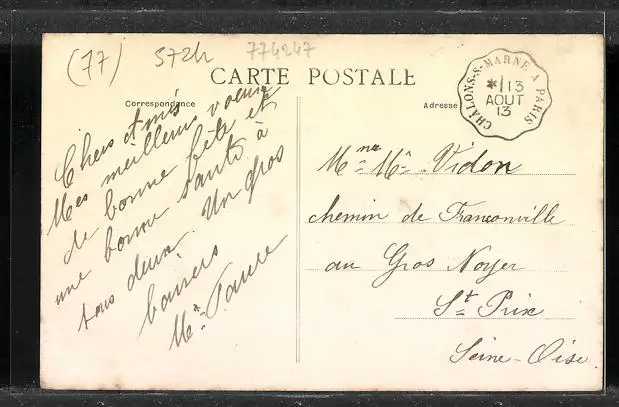 (77) 572h 774247
CARTE POSTALE
Correspondance
Adresse
CHALONS-S-MARNE A PARIS
* 13
AOUT
13
Chers et mis
Mes meilleurs voeux
de bonne fête et
une bonne santé à
tous deux. Un gros
baisers
Me Faure
Mme Mr Vidon
chemin de Franconville
au Gros Noyer
St Prix
Seine-Oise